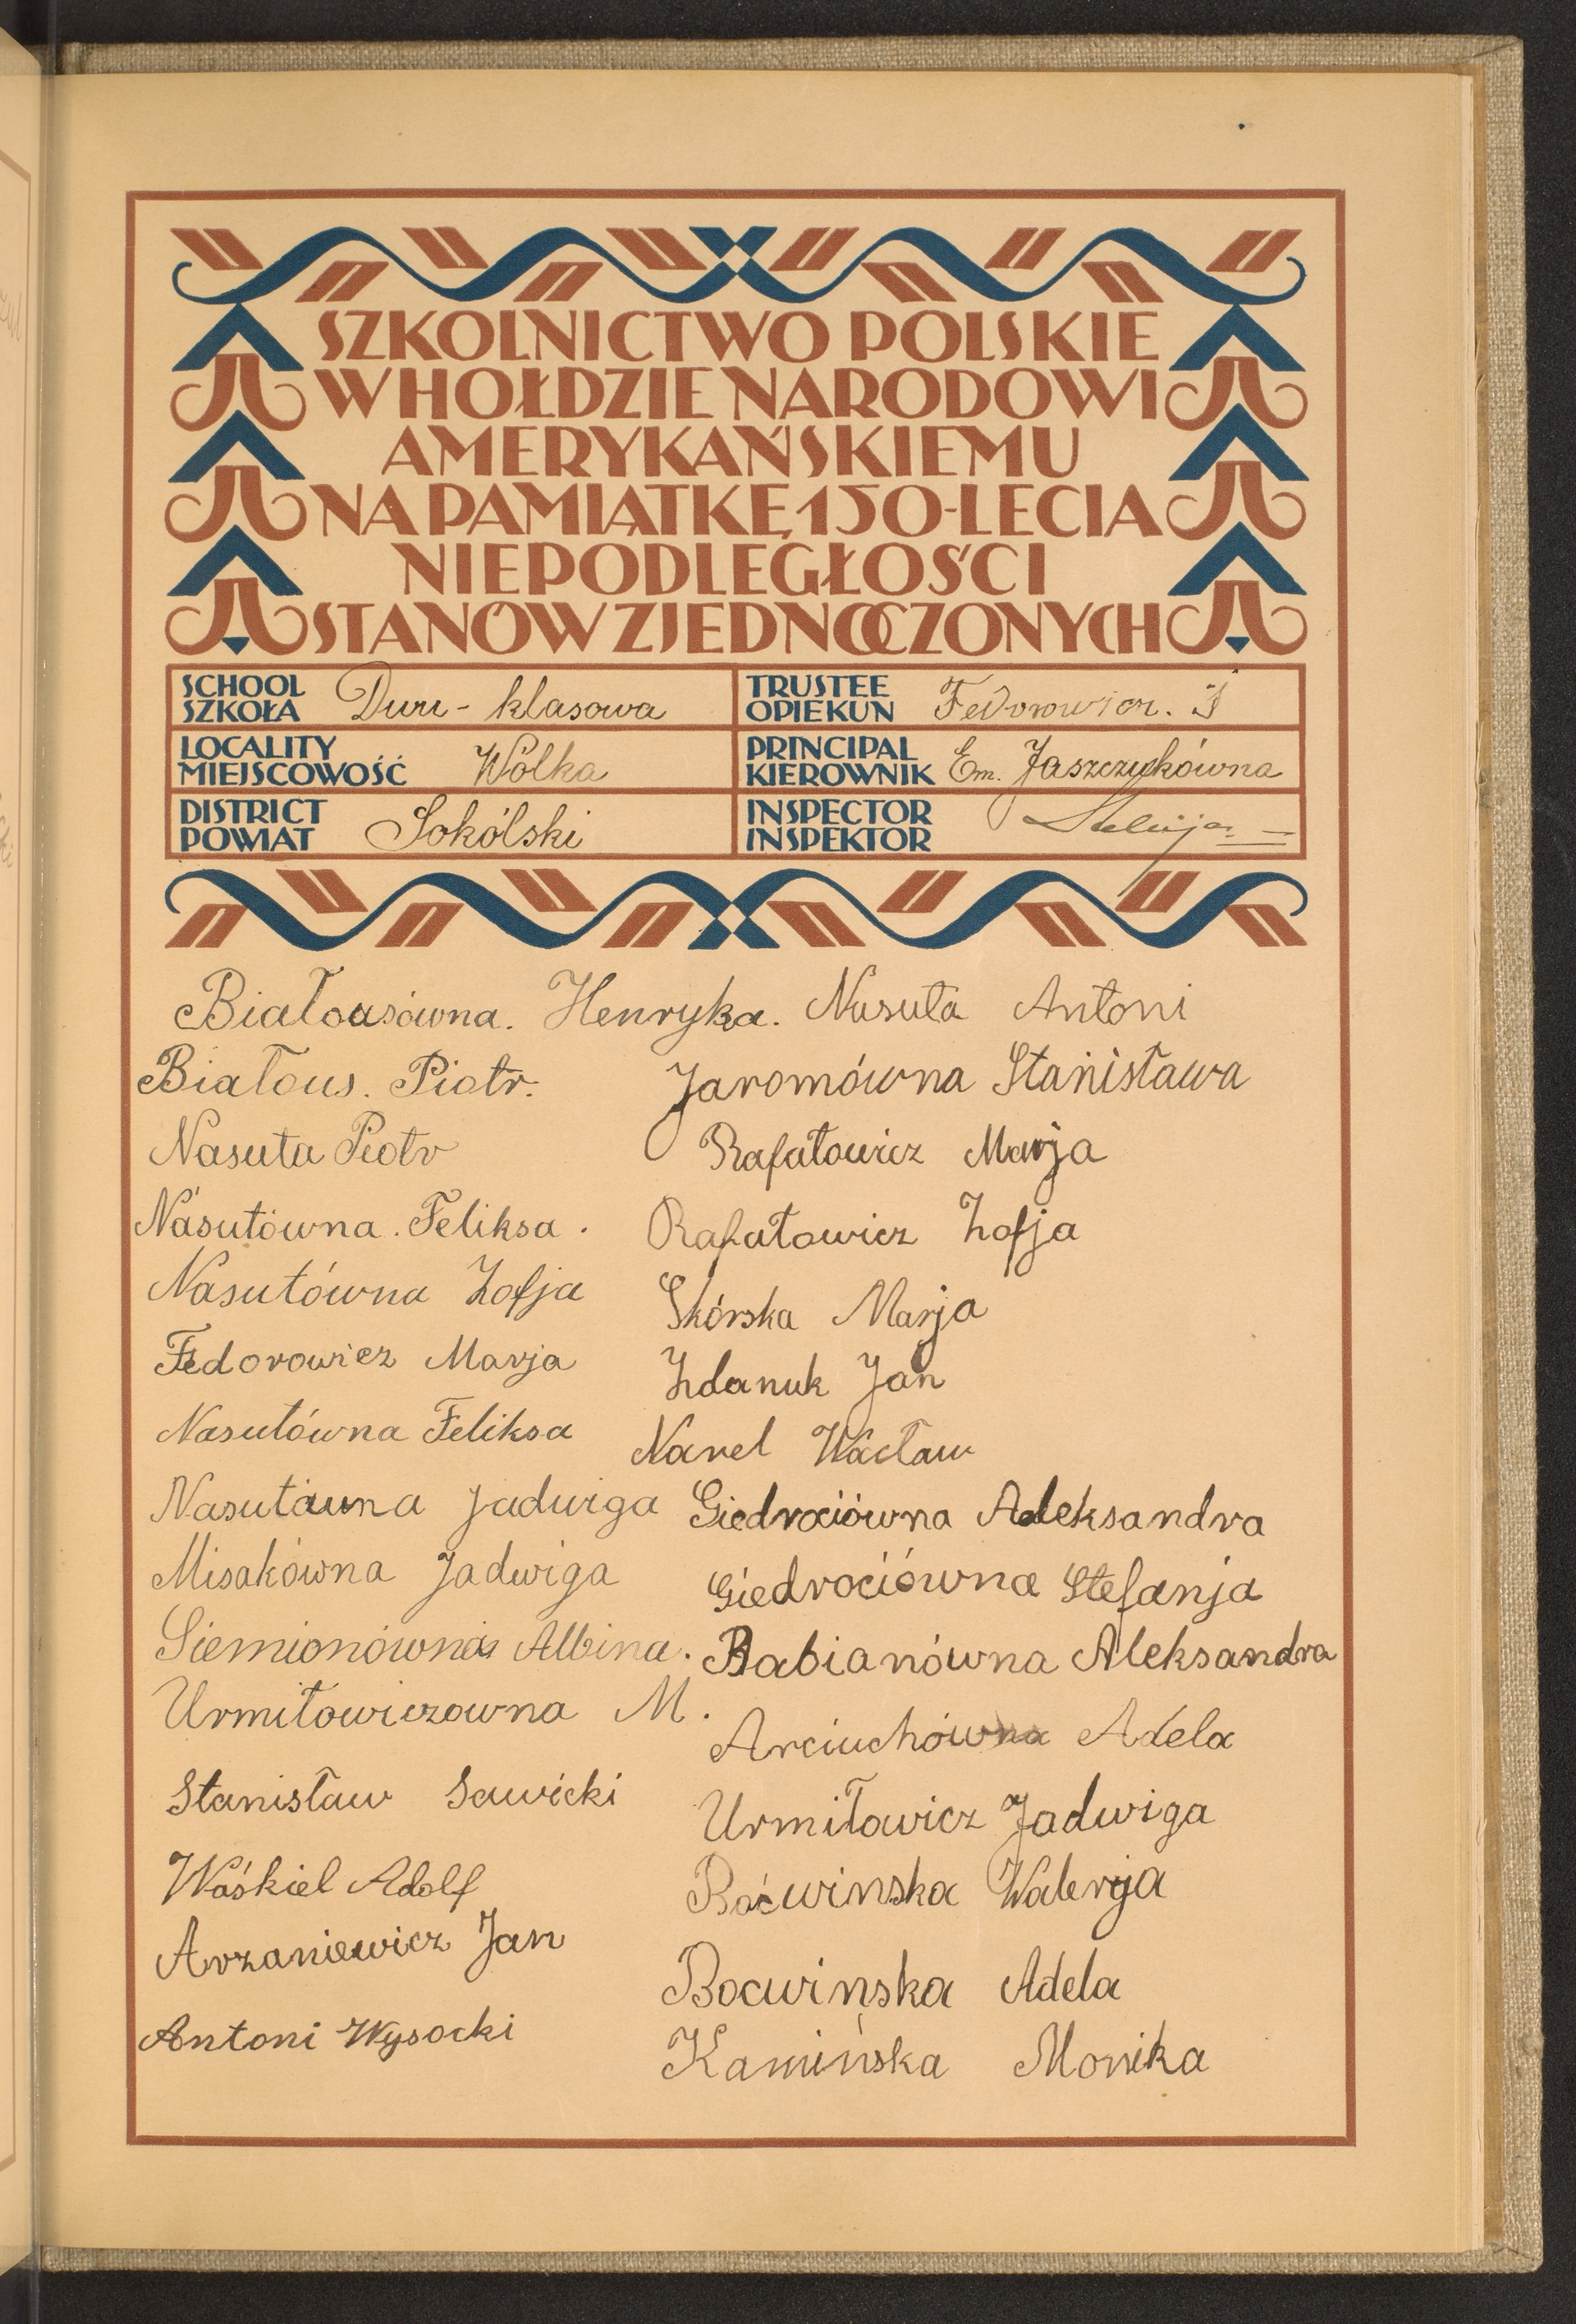 SZKOLNICTWO POLSKIE
W HOŁDZIE NARODOWI
AMERYKAŃSKIEMU
NA PAMIĄTKĘ 150-LECIA
NIEPODLEGŁOŚCI
STANÓW ZJEDNOCZONYCH
SCHOOL
SZKOŁA
Dwu-klasowa
TRUSTEE
OPIEKUN
Fedorowicz. J
LOCALITY
MIEJSCOWOŚĆ
Wólka
PRINCIPAL
KIEROWNIK
Em. Jaszczukówna
DISTRICT
POWIAT
Sokólski
INSPECTOR
INSPEKTOR
Białousówna. Henryka.
Białous. Piotr.
Nasuta Piotr
Nasutówna. Feliksa.
Nasutówna Zofja
Fedorowicz Marja
Nasutówna Feliksa
Nasutówna Jadwiga
Misakówna Jadwiga
Siemionówna Albina.
Urmiłowiczowna M.
Stanisław Sawicki
Waśkiel Adolf
Arzaniewicz Jan
Antoni Wysocki
Nasuta Antoni
Jaromówna Stanisława
Rafałowicz Marja
Rafałowicz Zofja
Skórska Marja
Zdanuk Jan
Narel Wacław
Giedrociówna Aleksandra
Giedrociówna Stefanja
Babianówna Aleksandra
Arciuchówna Adela
Urmiłowicz Jadwiga
Boćwinska Walerja
Bocwinska Adela
Kamińska Monika